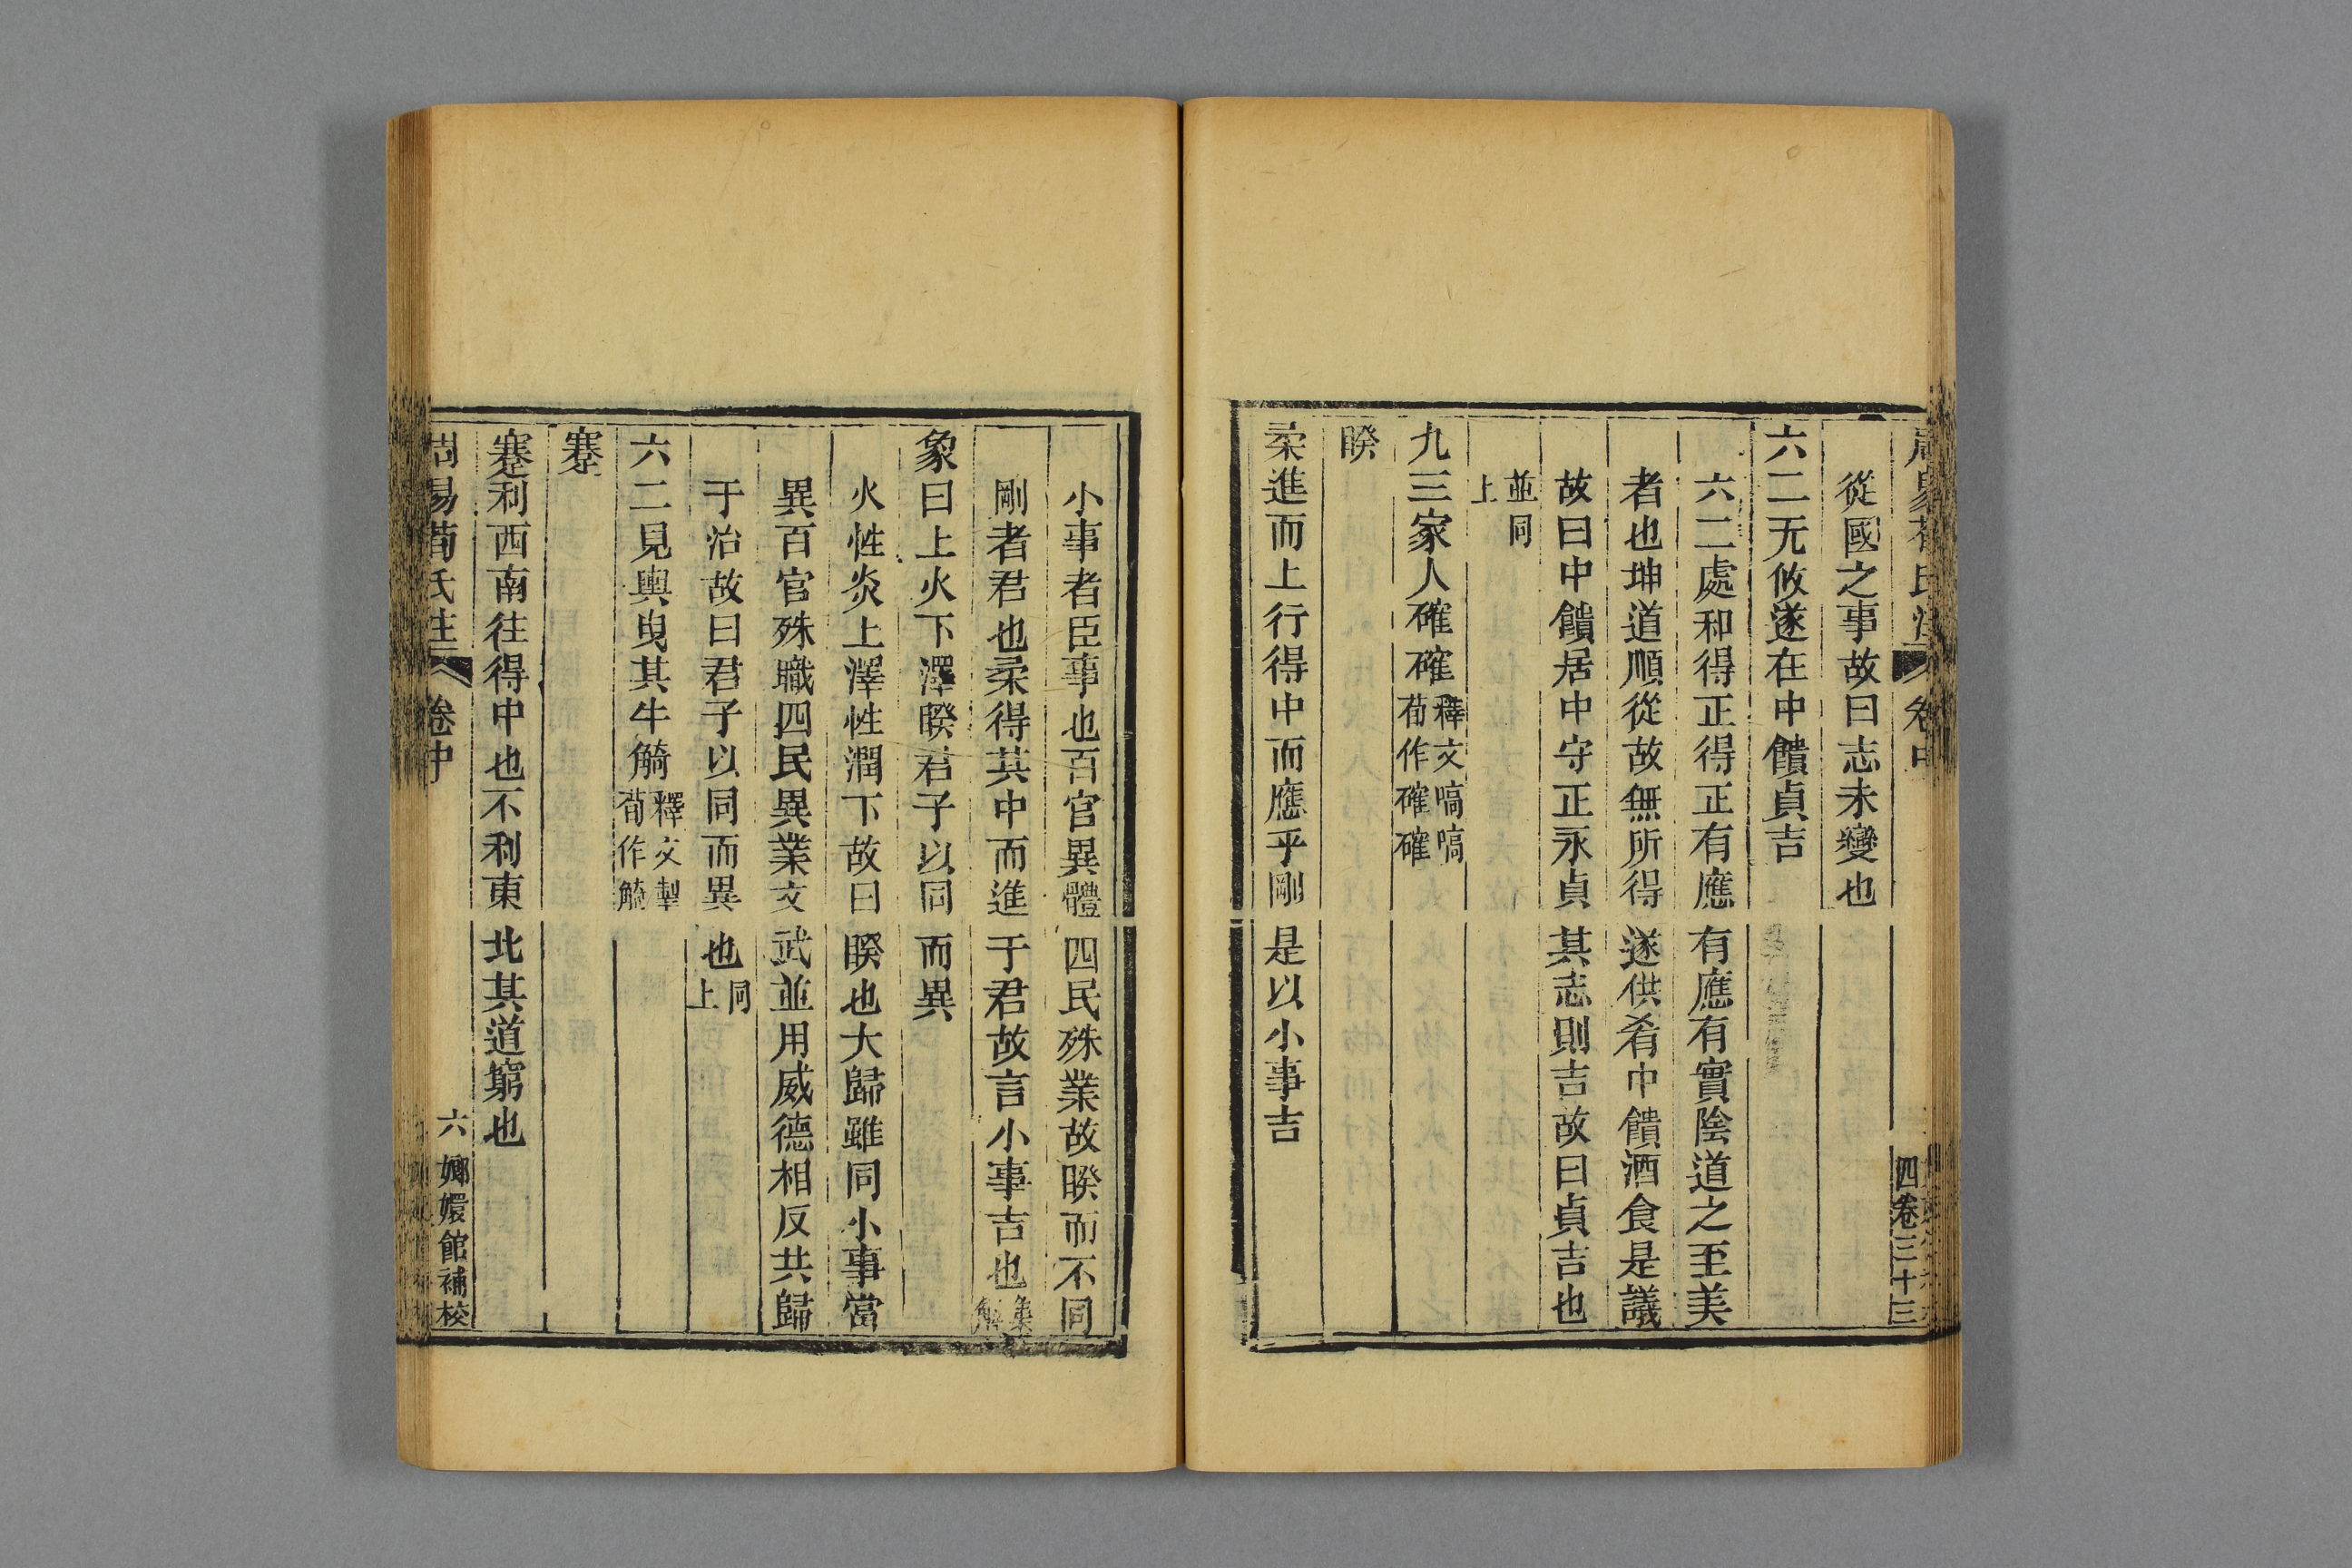 周易荀氏注 卷中 四卷三十三
從國之事故曰志未變也
六二无攸遂在中饋貞吉
六二處和得正得正有應有應有實陰道之至美
者也坤道順從故無所得遂供肴中饋酒食是議
故曰中饋居中守正永貞其志則吉故曰貞吉也
並同
上
九三家人確確釋文嗃嗃
荀作確確
睽
柔進而上行得中而應乎剛是以小事吉
小事者臣事也百官異體四民殊業故睽而不同
剛者君也柔得其中而進于君故言小事吉也集
解
象曰上火下澤睽君子以同而異
火性炎上澤性潤下故曰睽也大歸雖同小事當
異百官殊職四民異業文武並用威德相反共歸
于治故曰君子以同而異也同
上
六二見輿曳其牛觭釋文掣
荀作觭
蹇
蹇利西南往得中也不利東北其道窮也
周易荀氏注 卷中 六 嫏嬛館補校